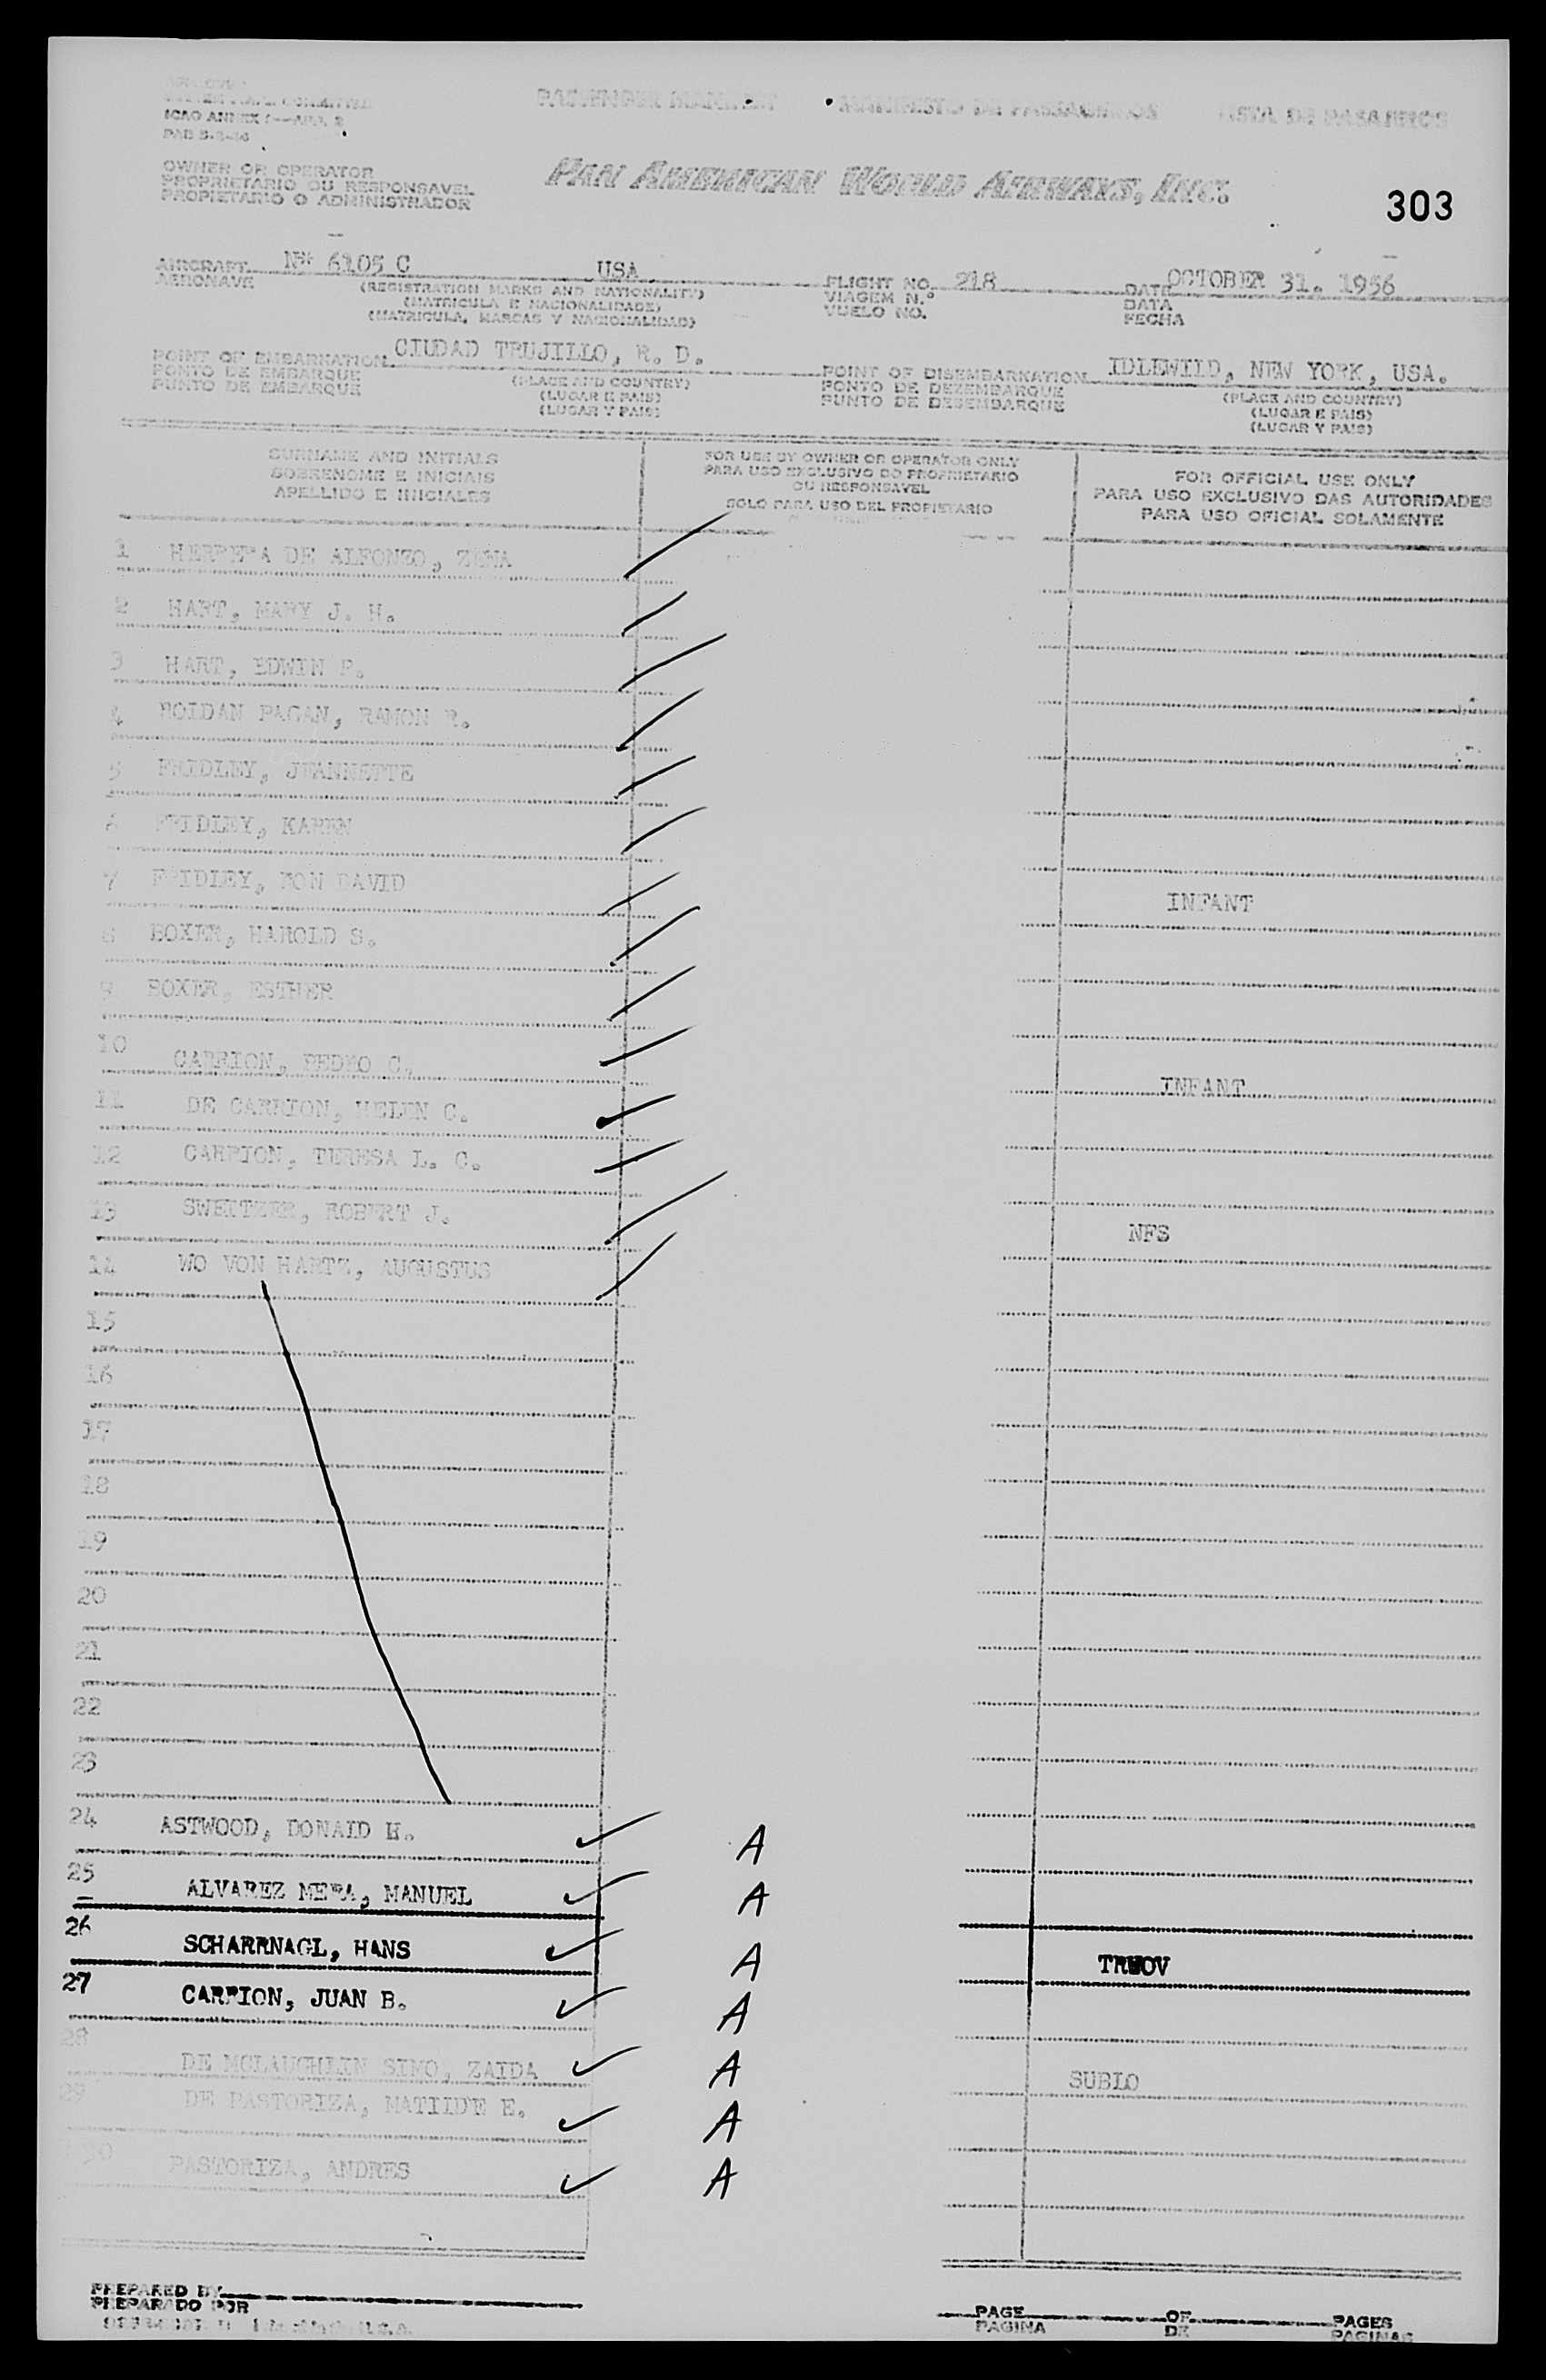 ICAO ANNEX
PASSENGER MANIFEST MANIFESTO DE PASSAGEIROS LISTA DE PASAJEROS
OWNER OR OPERATOR
PROPRIETARIO OU RESPONSAVEL
PROPIETARIO O ADMINISTRADOR
PAN AMERICAN WORLD AIRWAYS, INC.
303
AIRCRAFT N* 6105 C USA FLIGHT NO. 218 DATE OCTOBER 31. 1956
AERONAVE (REGISTRATION MARKS AND NATIONALITY) VIAGEM N.º DATA
(MATRICULA E NACIONALIDADE) VUELO NO. FECHA
(MATRICULA, MARCAS Y NACIONALIDAD)
POINT OF EMBARKATION CIUDAD TRUJILLO, R. D. POINT OF DISEMBARKATION IDLEWILD, NEW YORK, USA.
PONTO DE EMBARQUE (PLACE AND COUNTRY) PONTO DE DEZEMBARQUE (PLACE AND COUNTRY)
PUNTO DE EMBARQUE (LUGAR E PAIS) PUNTO DE DESEMBARQUE (LUGAR E PAIS)
(LUGAR Y PAIS) (LUGAR Y PAIS)
SURNAME AND INITIALS FOR USE BY OWNER OR OPERATOR ONLY FOR OFFICIAL USE ONLY
SOBRENOME E INICIAIS PARA USO EXCLUSIVO DO PROPRIETARIO PARA USO EXCLUSIVO DAS AUTORIDADES
APELLIDO E INICIALES OU RESPONSAVEL PARA USO OFICIAL SOLAMENTE
SOLO PARA USO DEL PROPIETARIO
1 HERRERA DE ALFONZO,
2 HART, MARY J. H.
3 HART, EDWIN P.
4 ROLDAN PAGAN, RAMON R.
5 FRIDLEY, JEANNETTE
6 FRIDLEY, KAREN
7 FRIDLEY, RON DAVID INFANT
8 BOXER, HAROLD S.
9 BOXER, ESTHER
10 CARRION, PEDRO C. INFANT
11 DE CARRION, HELEN C.
12 CARRION, TERESA L. C.
13 SWEITZER, ROBERT J. NFS
14 WO VON HARTZ, AUGUSTUS
15
16
17
18
19
20
21
22
23
24 ASTWOOD, DONALD H. A
25 ALVAREZ MERA, MANUEL A
26 SCHARRNAGL, HANS A TRWOV
27 CARRION, JUAN B. A
28 DE MCLAUGHLIN SIMO, ZAIDA A SUBLO
29 DE PASTORIZA, MATILDE E. A
30 PASTORIZA, ANDRES A
PREPARED BY
PREPARADO POR
PAGE OF PAGES
PAGINA DE PAGINAS